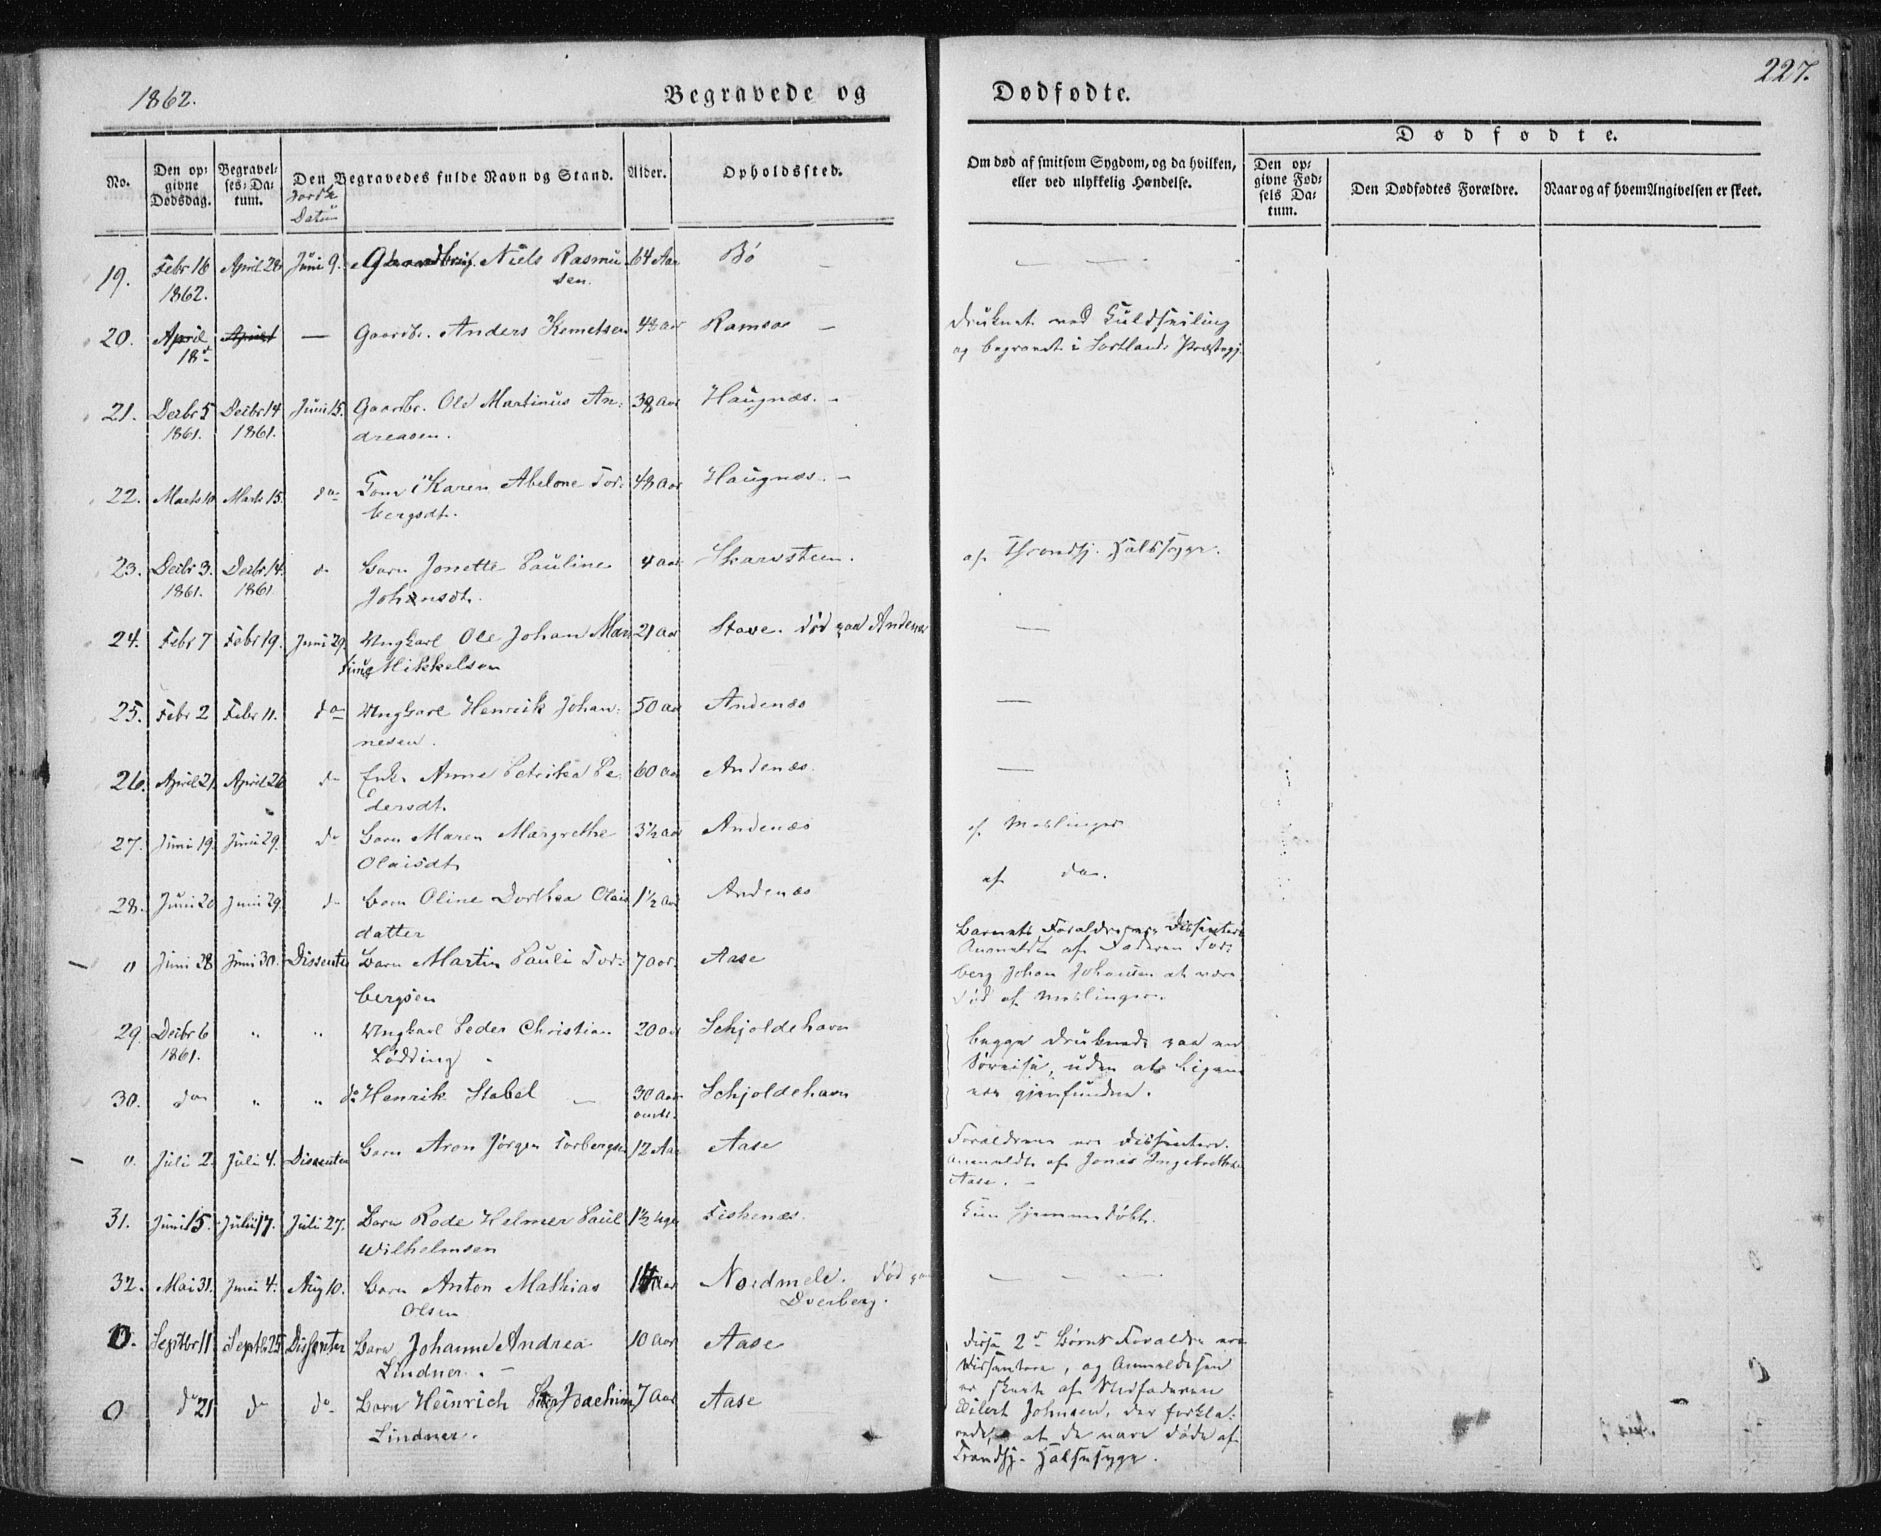 1862.
Begravede og
Dødfødte.
227.
Dødfødte.
No.
Den op-
givne
Dødsdag.
Begravel-
ses-Da-
tum.
Den Begravedes fulde Navn og Stand.
Jordk.
Datum
Alder.
Opholdssted.
Om død af smitsom Sygdom, og da hvilken,
eller ved ulykkelig Hændelse.
Den op-
givne Fød-
sels Da-
tum.
Den Dødfødtes Forældre.
Naar og af hvem Angivelsen er skeet.
19. Febr 16 April 28 Juni 9. Niels Rasmu 64 Aar Bø —
1862. sen.
20. April April — Gaardbr. Anders Kemetsen 43 Aar Ramsaa — druknet ved
18d og begravet i Sortlands Præstegj.
21. Decbr 5 Decbr 14 Juni 15. Gaardbr. Ole Martinus An- 39 Aar Haugnæs. —
1861. 1861. dreasen.
22. Marts 10 Marts 15. do Karen Abelone Tor- 48 Aar Haugnæs. —
bergsdt.
23. Decbr 3. Decbr 14. do Barn Jonette Pauline 4 Aar Skarvsteen. af Throndhj. Halssyge.
1861. 1861 Johansdt.
24. Febr 7 Febr 19. Juni 29. Ungkarl Ole Johan Mar 21 Aar Stave. død paa Andenæs —
tinus Mikkelsen
25. Febr 2 Febr 11. do Ungkarl Henrik Johan- 50 Aar Andenæs —
nesen.
26. April 21. April 26 do Enke Anne Petrikka Pe- 60 Aar Andenæs. —
dersdt.
27. Juni 19. Juni 29. do Barn Maren Margrethe 3½ Aar Andenæs af Meslinger
Olaisdt.
28. Juni 20 Juni 29. do Barn Oline Dorthea Olais 1½ Aar Andenæs af do.
datter
0 Juni 28 Juni 30. Dissenter Barn Martin Pauli Tor- 7 Aar. Aase
bergsen
Barnets Forældre ere Dissentere
Anmeldt af Faderen Tor-
berg Johan Johansen at være
død af Meslinger.
29. Decbr 6 " " Ungkarl Peder Christian 20 Aar Schjoldehavn
1861. Lødding
30. do " " do Henrik Stabel — 30 Aar Schjoldehavn
omtr.
begge druknede paa en
Søreise, uden at Ligene
ere gjenfundne.
0. Juli 2. Juli 4. Dissenter Barn Aron Jørgen Torbergsen 12 Aar Aase
Forældrene ere Dissentere.
Anmeldt af Jonas Ingebrethsen
Aase. —
31. Juni 15. Juli 17. Juli 27. Barn Rode Helmer Paul 1½ Uge Fiskenæs. Kun hjemmedøbt.
Wilhelmsen
32. Mai 31. Juni 4. Aug 10. Barn Anton Mathias Aar Nordmele. død paa
Olsen Dverberg.
0. Septbr 11 Septbr 25 Dissenter Barn Johanne Andrea 10 Aar Aase
Lindner. —
0 do 21 do do Barn Heinrich Joachim 7 Aar Aase
Lindner.
Disse 2de Børns Forældre ere
Dissentere, og Anmeldelsen
er skeet af Stedfaderen
Eilert Johnsen, der forkla-
rede, at de vare døde af
Trondhj. Halssyge.